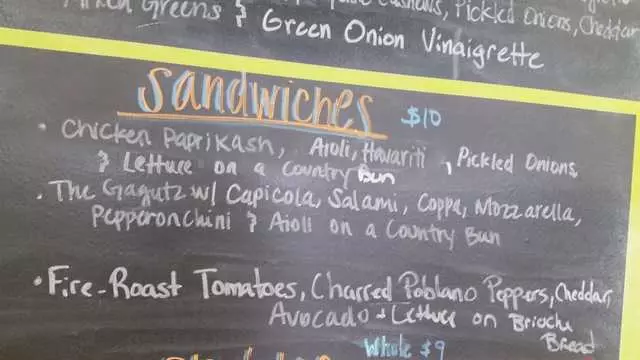 Greens & Cashews, Pickled Onions, Cheddar
Green Onion Vinaigrette
Sandwiches $10
• Chicken Paprikash, Aioli, Havarti, Pickled Onions
& Lettuce on a Country Bun
• The Gagutz w/ Capicola, Salami, Coppa, Mozzarella,
Pepperonchini & Aioli on a Country Bun
• Fire-Roast Tomatoes, Charred Poblano Peppers, Cheddar,
Avocado + Lettuce on Brioche
Bread
Whole $9